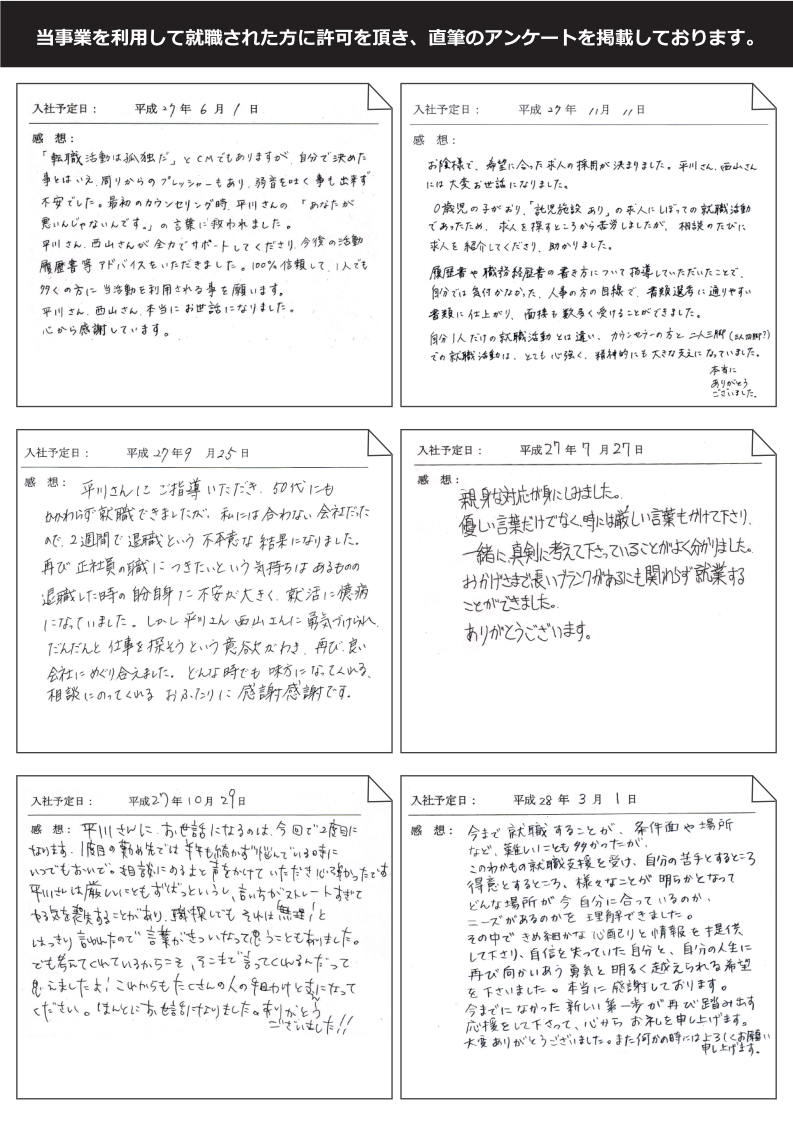 当事業を利用して就職された方に許可を頂き、直筆のアンケートを掲載しております。
入社予定日： 平成 27 年 6 月 1 日
感 想：
「転職活動は孤独だ」とCMでもありますが、自分で決めた
事とはいえ、周りからのプレッシャーもあり、弱音を吐く事も出来ず
不安でした。最初のカウンセリング時、平川さんの 「あなたが
悪いんじゃないんです。」の言葉に救われました。
平川さん、西山さんが全力でサポートしてくださり、今後の活動
履歴書等アドバイスをいただきました。100%信頼して、1人でも
多くの方に当活動を利用される事を願います。
平川さん、西山さん、本当にお世話になりました。
心から感謝しています。
入社予定日： 平成 27 年 11 月 11 日
感 想：
お陰様で、希望に合った求人の採用が決まりました。平川さん、西山さん
には大変お世話になりました。
0歳児の子がおり、「託児施設あり」の求人にしぼっての就職活動
であったため、求人を探すところから苦労しましたが、相談のたびに
求人を紹介してくださり、助かりました。
履歴書や職務経歴書の書き方について指導していただいたことで、
自分では気付かなかった、人事の方の目線で、書類選考に通りやすい
書類に仕上がり、面接も数多く受けることができました。
自分1人だけの就職活動とは違い、カウンセラーの方と二人三脚(三人四脚?)
での就職活動は、とても心強く、精神的にも大きな支えになっていました。
本当に
ありがとう
ございました。
入社予定日： 平成 27 年 9 月 25 日
感 想： 平川さんにご指導いただき、50代にも
かかわらず就職できましたが、私には合わない会社だった
ので、2週間で退職という不本意な結果になりました。
再び正社員の職につきたいという気持ちはあるものの
退職した時の自分自身に不安が大きく、就活に臆病
になっていました。しかし平川さん西山さんに勇気づけられ、
だんだんと仕事を探そうという意欲がわき、再び、良い
会社にめぐり合えました。どんな時でも味方になってくれる、
相談にのってくれる おふたりに感謝感謝です。
入社予定日： 平成 27 年 7 月 27 日
感 想：
親身な対応が身にしみました。
優しい言葉だけでなく、時には厳しい言葉もかけて下さり、
一緒に、真剣に考えて下さっていることがよく分かりました。
おかげさまで長いブランクがあるにも関わらず就業する
ことができました。
ありがとうございます。
入社予定日： 平成 27 年 10 月 29 日
感 想： 平川さんに、お世話になるのは、今回で2度目に
なります。1度目の勤め先では半年も続かず悩んでいる時に
いつでもおいで。相談にのるよと声をかけていただき心強かったです
平川さんは厳しいこともずばっというし、言い方がストレートすぎて
やる気を喪失することがあり、職探しでも それは無理！と
はっきり言われたので 言葉がきついなって思うこともありました。
でも考えてくれているからこそ、そこまで言ってくれるんだって
思えましたよ！これからもたくさんの人の手助けと支えになって
ください。ほんとにお世話になりました。ありがとう
ございました!!
入社予定日： 平成 28 年 3 月 1 日
感 想： 今まで就職することが、条件面や場所
など、難しいことも多かったが、
このわかもの就職支援を受け、自分の苦手とするところ
得意とするところ、様々なことが明らかとなって
どんな場所が今自分に合っているのか、
ニーズがあるのかを理解できました。
その中できめ細かな心配りと情報を提供
して下さり、自信を失っていた自分と、自分の人生に
再び向かいあう勇気と明るく越えられる希望
を下さいました。本当に感謝しております。
今までになかった新しい第一歩が再び踏み出す
応援をして下さって、心からお礼を申し上げます。
大変ありがとうございました。また何かの時にはよろしくお願い
申し上げます。